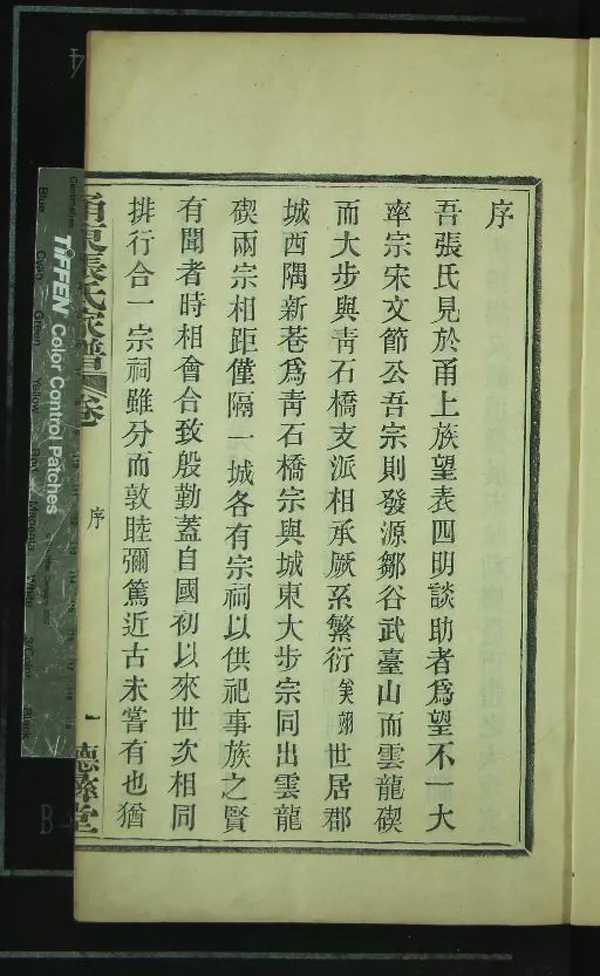 序
吾張氏見於甬上族望表四明談助者爲望不一大
率宗宋文節公吾宗則發源鄒谷武臺山而雲龍碶
而大步與靑石橋支派相承厥系繁衍羙翊世居郡
城西隅新巷爲靑石橋宗與城東大步宗同出雲龍
碶兩宗相距僅隔一城各有宗祠以供祀事族之賢
有聞者時相會合致殷勤蓋自國初以來世次相同
排行合一宗祠雖分而敦睦彌篤近古未嘗有也猶
甬東張氏家譜 卷
序
一
德彝堂
TIFFEN Color Control Patches
Centimetres
Blue
Cyan
Green
Yellow
Red
Magenta
White
3/Color
Black